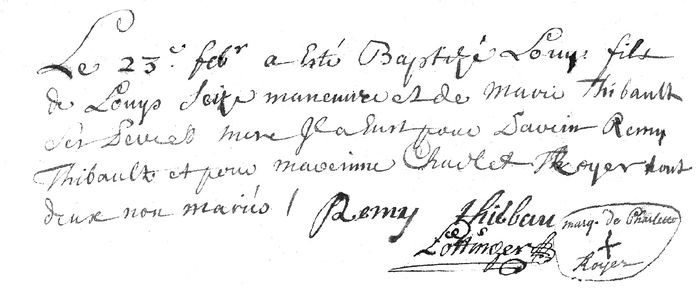 Le 23e. febr a Esté Baptizé Louys fils
de Louys Seize maneuvre et de Marie Thibault
Ses Pere et mere Il a Eust pour Parein Remy
Thibault et pour mareinne Charlet Royer tout
deux non mariés /
Remy thiebau marq. de Charlette
Lottinger + Royer